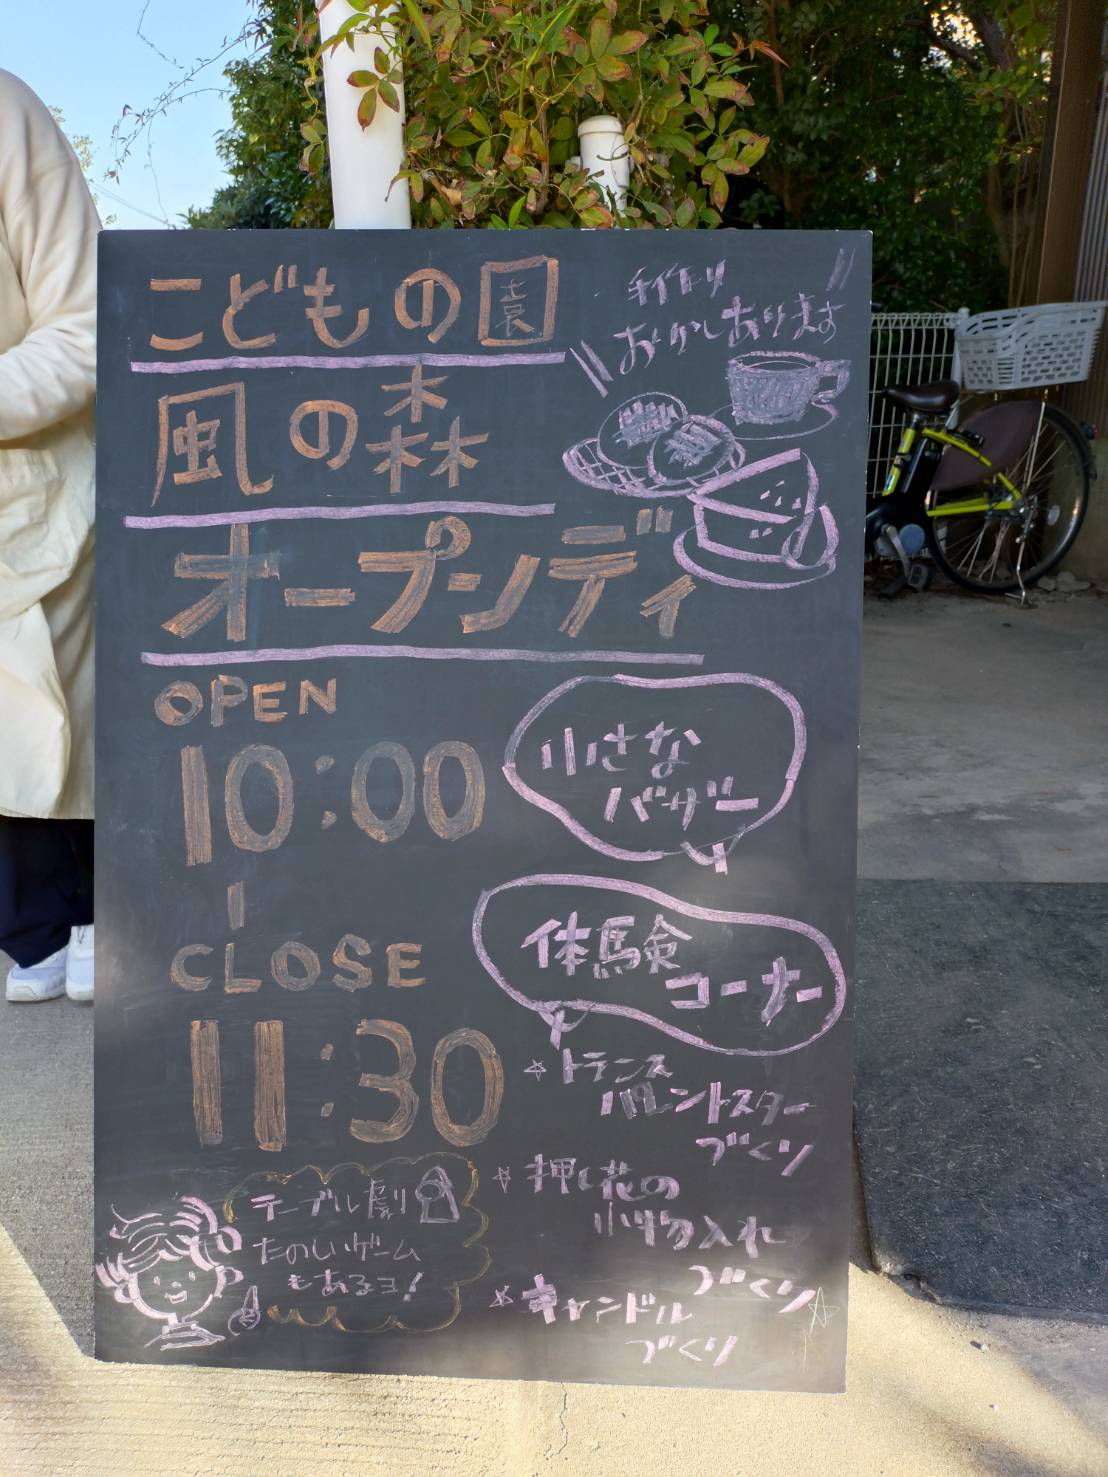 こどもの園
風の森
オープンディ
手作り
おかしあります
OPEN
10:00
CLOSE
11:30
小さな
バザー
体験
コーナー
☆トランス
パレントスター
づくり
☆押し花の
小物入れ
づくり☆
☆キャンドル
づくり
テーブル劇
たのしいゲーム
もあるヨ!